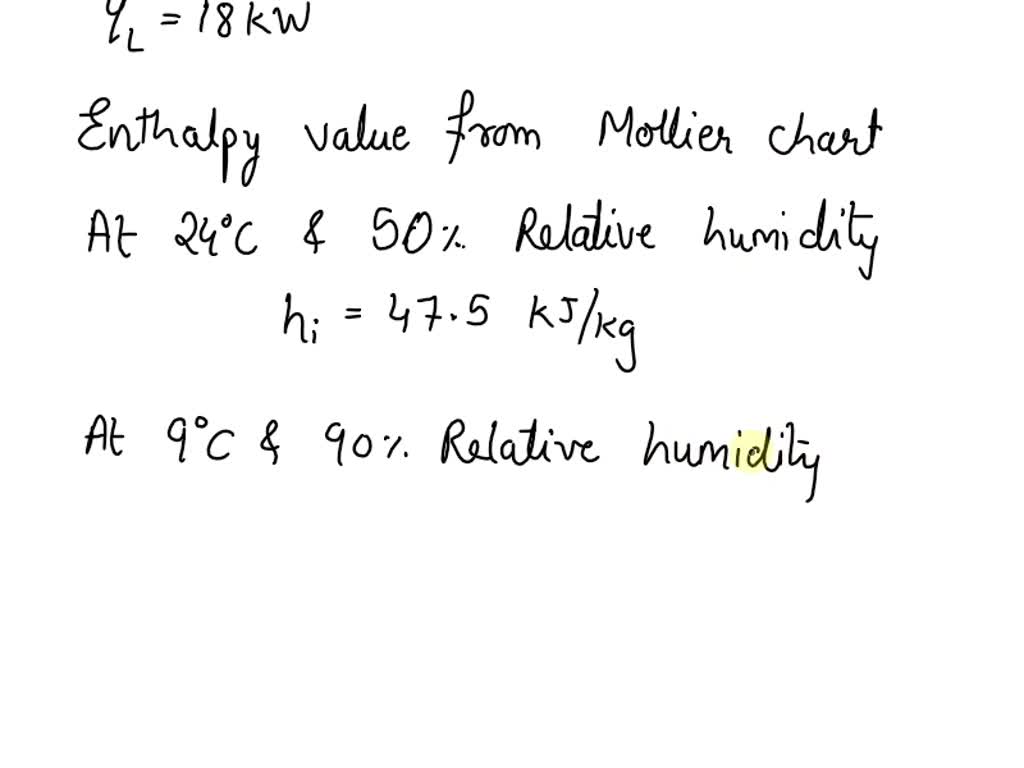 q_L = 18 kW
Enthalpy value from Mollier chart
At 24°C & 50% Relative humidity
h_i = 47.5 kJ/kg
At 9°C & 90% Relative humidity